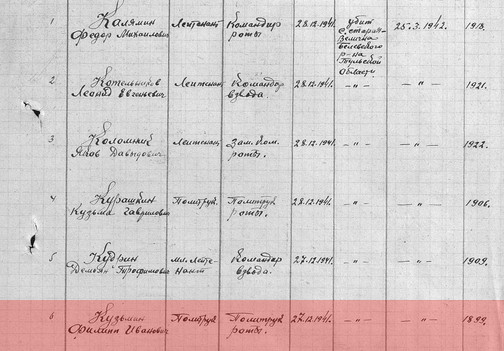 1 Калямин Федор Михайлович Лейтенант Командир роты 28.12.1941. убит с. Сторан-Величка Белевского р-на Тульской области 25.3.1942. 1918.
2 Котельников Леонид Евгеньевич Лейтенант Командир взвода 28.12.1941. —"— —"— 1921.
3 Коломний Яков Давыдович. Лейтенант Зам. Ком. роты. 28.12.1941. —"— —"— 1922.
4 Курашкин Кузьма Гаврилович Политрук. Политрук роты. 28.12.1941. —"— —"— 1906.
5 Кудрин Демьян Трофимович мл. Лейтенант Командир взвода. 27.12.1941. —"— —"— 1909.
6 Кузьмин Филипп Иванович Политрук Политрук роты. 27.12.1941. —"— —"— 1899.